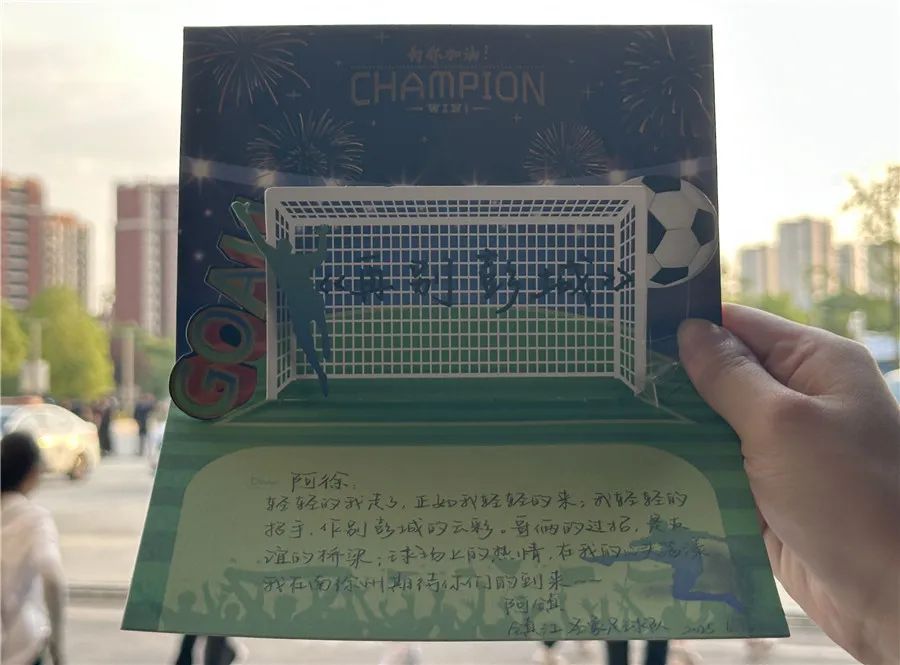 为你加油!
CHAMPION
WIN!
GOAL
《再别彭城》
Dear 阿徐:
轻轻的我走了,正如我轻轻的来;我轻轻的
招手,作别彭城的云彩。哥俩的过招,是友
谊的桥梁;球场上的热情,在我的心头荡漾
我在南徐州期待你们的到来——
阿镇
镇江 足球队 2025